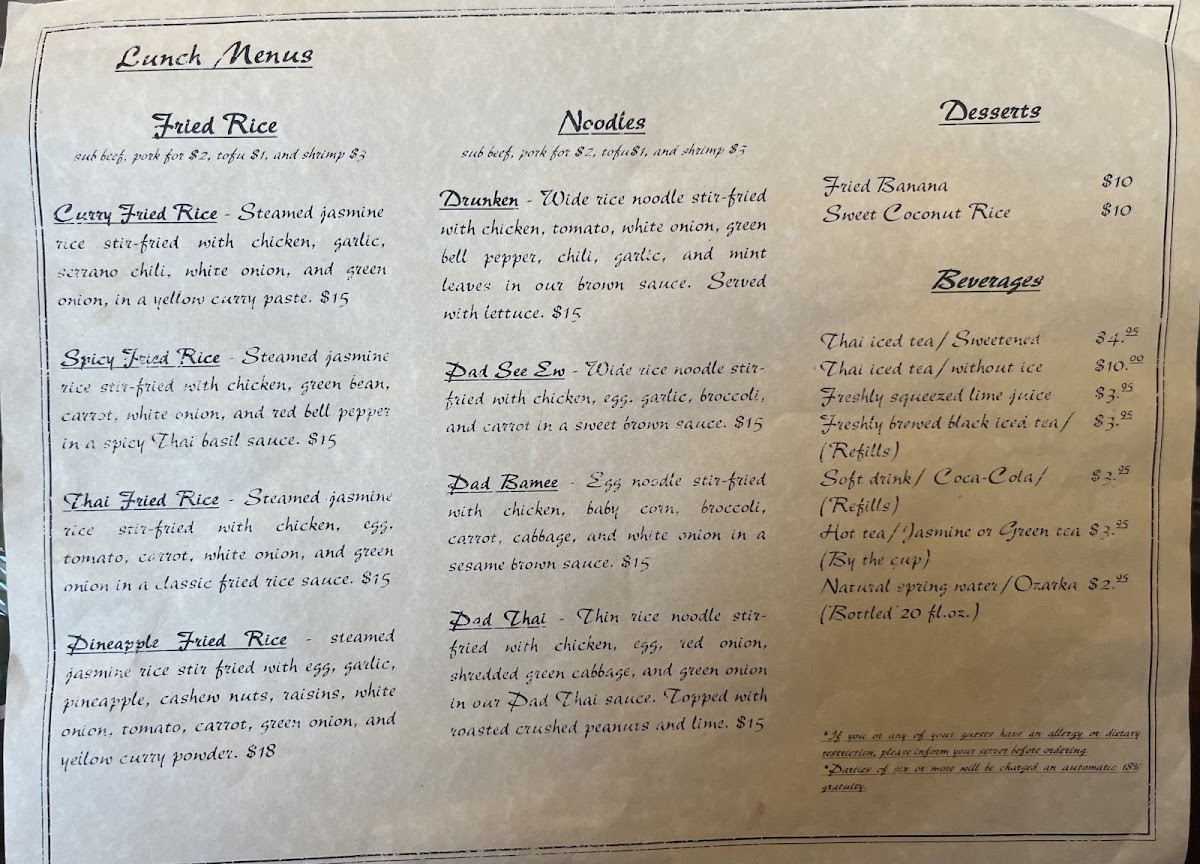 Lunch Menus
Fried Rice
sub beef, pork for $2, tofu $1, and shrimp $3
Curry Fried Rice - Steamed jasmine
rice stir-fried with chicken, garlic,
serrano chili, white onion, and green
onion, in a yellow curry paste. $15
Spicy Fried Rice - Steamed jasmine
rice stir-fried with chicken, green bean,
carrot, white onion, and red bell pepper
in a spicy Thai basil sauce. $15
Thai Fried Rice - Steamed jasmine
rice stir-fried with chicken, egg,
tomato, carrot, white onion, and green
onion in a classic fried rice sauce. $15
Pineapple Fried Rice - steamed
jasmine rice stir fried with egg, garlic,
pineapple, cashew nuts, raisins, white
onion, tomato, carrot, green onion, and
yellow curry powder. $18
Noodles
sub beef, pork for $2, tofu$1, and shrimp $3
Drunken - Wide rice noodle stir-fried
with chicken, tomato, white onion, green
bell pepper, chili, garlic, and mint
leaves in our brown sauce. Served
with lettuce. $15
Pad See Ew - Wide rice noodle stir-
fried with chicken, egg, garlic, broccoli,
and carrot in a sweet brown sauce. $15
Pad Bamee - Egg noodle stir-fried
with chicken, baby corn, broccoli,
carrot, cabbage, and white onion in a
sesame brown sauce. $15
Pad Thai - Thin rice noodle stir-
fried with chicken, egg, red onion,
shredded green cabbage, and green onion
in our Pad Thai sauce. Topped with
roasted crushed peanuts and lime. $15
Desserts
Fried Banana $10
Sweet Coconut Rice $10
Beverages
Thai iced tea/ Sweetened $4.95
Thai iced tea/ without ice $10.00
Freshly squeezed lime juice $3.95
Freshly brewed black iced tea/ $3.95
(Refills)
Soft drink/ Coca-Cola/ $3.95
(Refills)
Hot tea/ Jasmine or Green tea $3.95
(By the cup)
Natural spring water/Ozarka $2.95
(Bottled 20 fl.oz.)
*If you or any of your guests have an allergy or dietary
restriction, please inform your server before ordering.
*Parties of six or more will be charged an automatic 18%
gratuity.